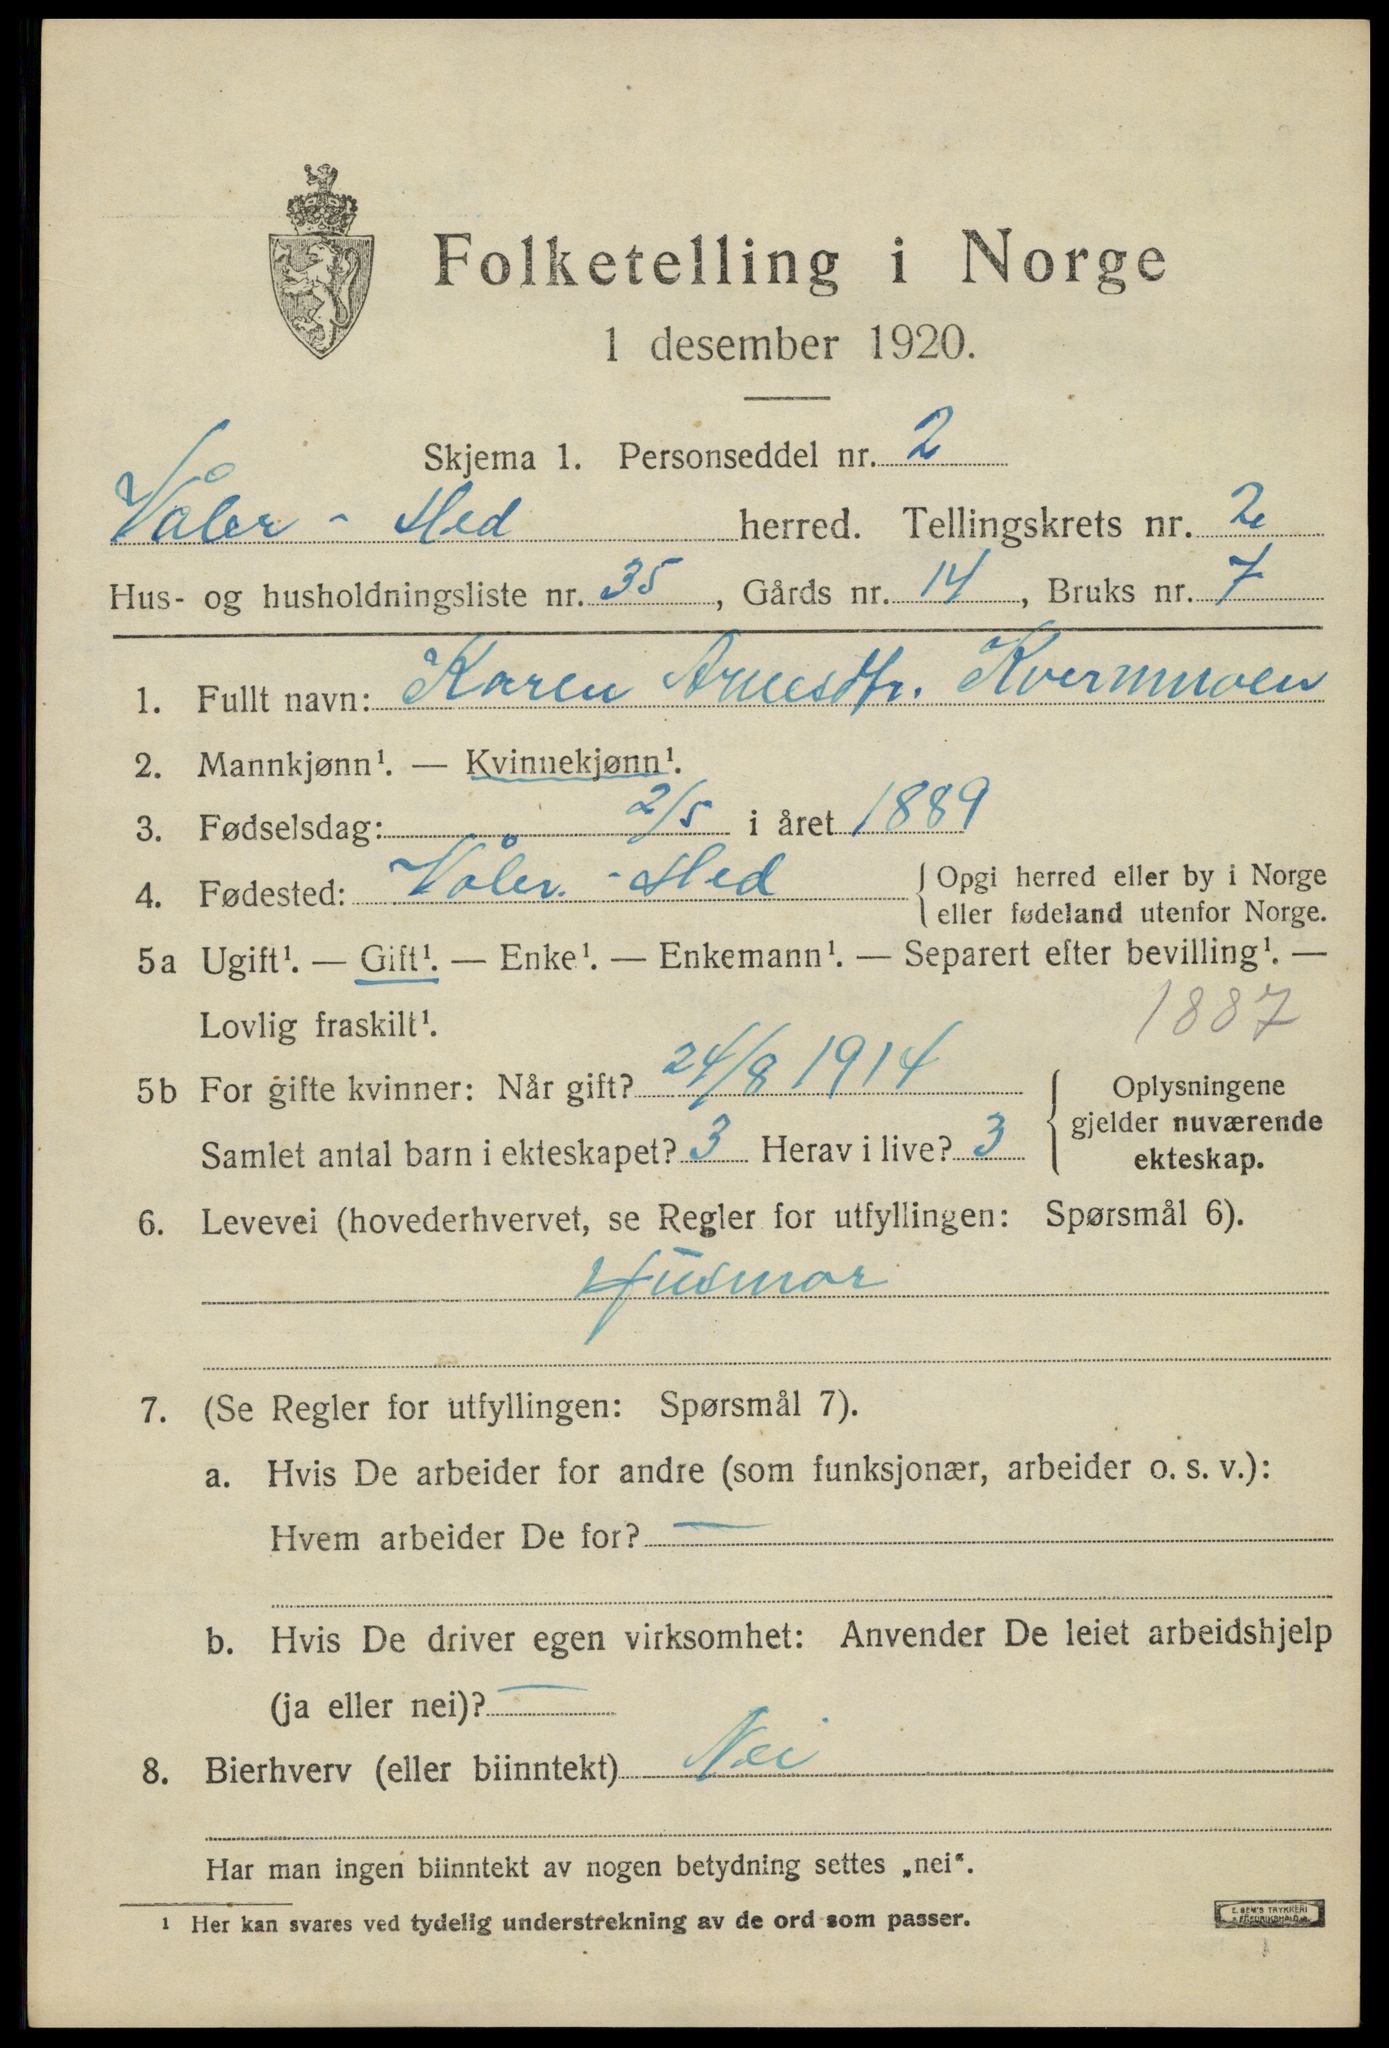 Folketelling i Norge
1 desember 1920.
Skjema 1. Personseddel nr. 2
Våler - Hed herred. Tellingskrets nr. 2
Hus- og husholdningsliste nr. 35, Gårds nr. 14, Bruks nr. 7
1. Fullt navn: Karen Arnesdtr. Kvernmoen
2. Mannkjønn¹. — Kvinnekjønn¹.
3. Fødselsdag: 2/5 i året 1889
4. Fødested: Våler. - Hed {Opgi herred eller by i Norge
eller fødeland utenfor Norge.
5a Ugift¹. — Gift¹. — Enke¹. — Enkemann¹. — Separert efter bevilling¹. —
Lovlig fraskilt¹. 1887
5b For gifte kvinner: Når gift? 24/8 1914 {Oplysningene
gjelder nuværende
Samlet antal barn i ekteskapet? 3 Herav i live? 3 ekteskap.
6. Levevei (hovederhvervet, se Regler for utfyllingen: Spørsmål 6).
Husmor
7. (Se Regler for utfyllingen: Spørsmål 7).
a. Hvis De arbeider for andre (som funksjonær, arbeider o. s. v.):
Hvem arbeider De for? —
b. Hvis De driver egen virksomhet: Anvender De leiet arbeidshjelp
(ja eller nei)? —
8. Bierhverv (eller biinntekt) Nei
Har man ingen biinntekt av nogen betydning settes „nei“.
¹ Her kan svares ved tydelig understrekning av de ord som passer.
E. SEM'S TRYKKERI
FREDRIKSHALD